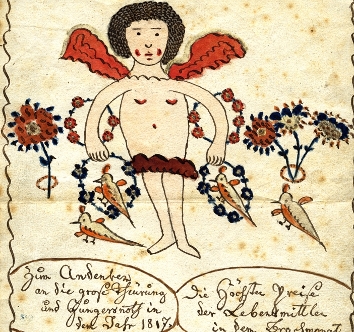 Zum Andenken
an die große Theurung
und Hungersnoth in
dem Jahr 1817.
Die Höchsten Preise
der Lebensmittler
in dem